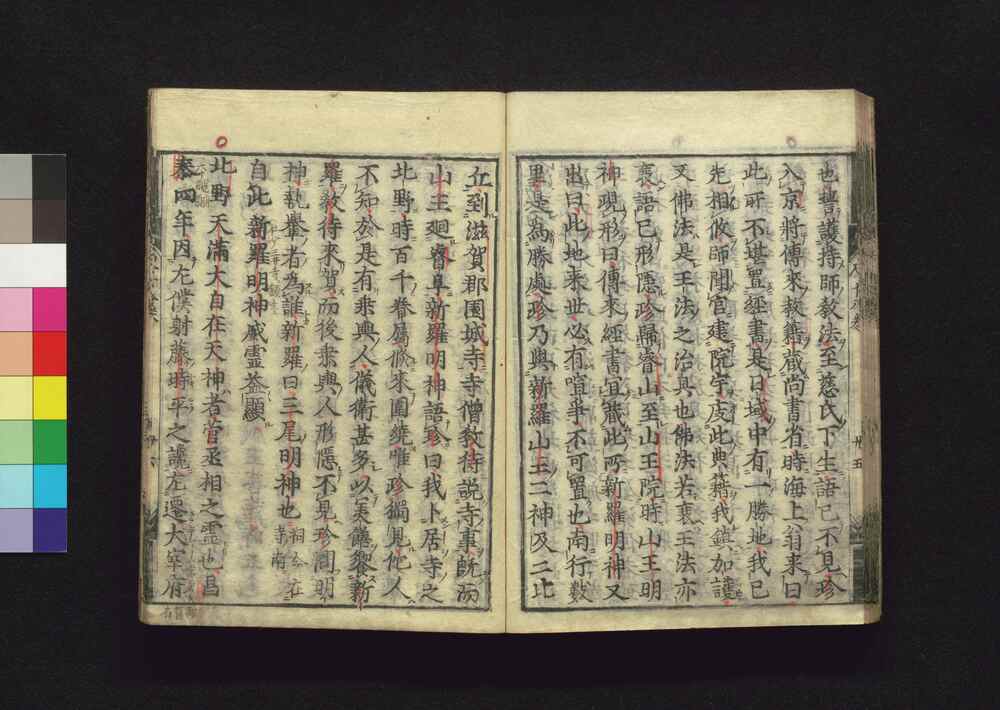 也誓護持師教法至慈氏下生語已不見珍
入京將傳來教籍藏尚書省時海上翁來曰
此所不堪置經書是日域中有一勝地我已
先相攸師聞官建院宇庋此典籍我鎮加護
又佛法是王法之治具也佛法若衰王法亦
衰語已形隱珍歸睿山至山王院時山王明
神現形曰傳來經書宜藏此所新羅明神又
出曰此地來世必有喧爭不可置也南行數
里是為勝處珍乃與新羅山王二神及二比
丘到滋賀郡園城寺寺僧教待説寺事既而
山王廻睿阜新羅明神語珍曰我卜居寺之
北野時百千眷屬倐來圍繞唯珍獨見他人
不知於是有乘輿人儀衛甚多以美饌饗新
羅教待來賀而後乘輿人形隱不見珍問明
神執轝者為誰新羅曰三尾明神也祠今在寺南
自此新羅明神威靈益顯
北野天滿大自在天神者菅丞相之靈也昌
泰四年因左僕射藤時平之讒左遷大宰府
廿五